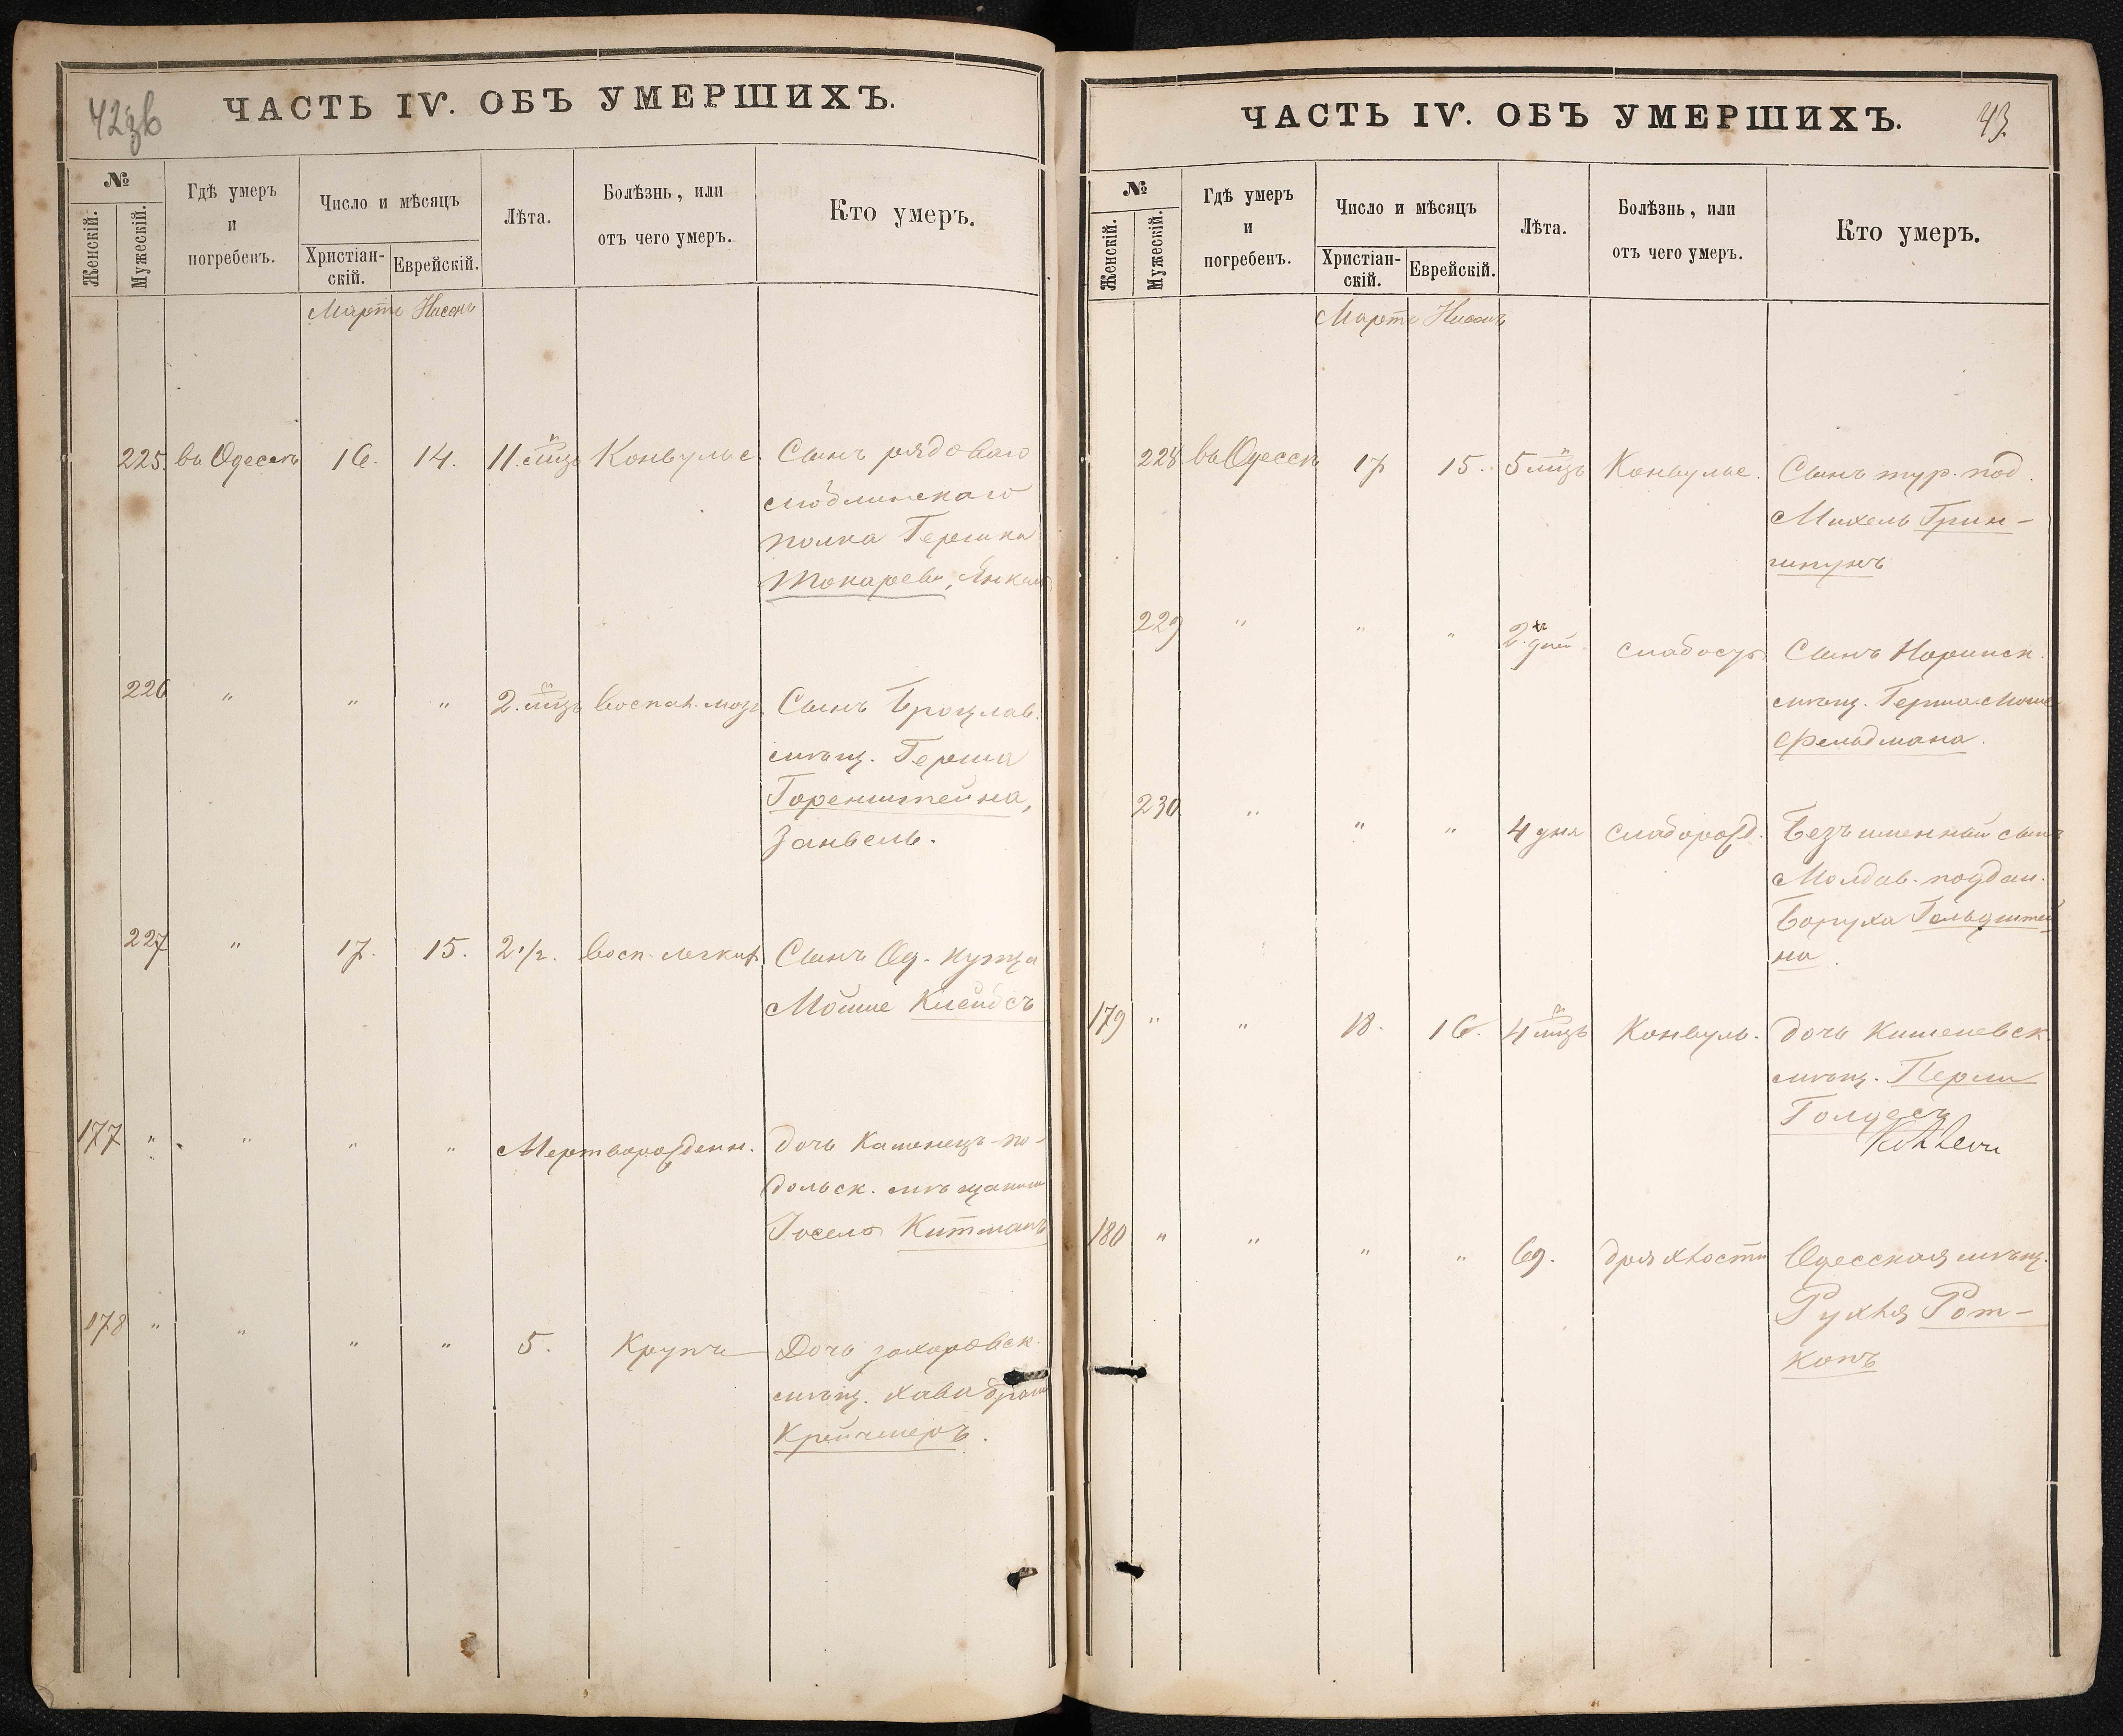 42зв
ЧАСТЬ IV. ОБЪ УМЕРШИХЪ.
№
Женскій.
Мужескій.
Гдѣ умеръ
и
погребенъ.
Число и мѣсяцъ
Христіан-
скій.
Еврейскій.
Лѣта.
Болѣзнь, или
отъ чего умеръ.
Кто умеръ.
Мартъ Нисонъ
225. въ Одессѣ 16. 14. 11. мѣц Конвульс. Сынъ рядоваго
люблинскаго
полка Гершка
Токарева, Янкель
226 " " " 2. мѣц воспал. мозг. Сынъ Брацлав.
мѣщ. Герша
Горенштейна,
Занвель.
227 " 17. 15. 2 1/2. Восп. легких Сынъ Од. купца
Мошие
177 " " " " Мертворожденн. дочь Каменецъ-по-
дольск. мѣщанина
Іосель Китманъ
178 " " " " 5. Крупъ Дочь захаровск.
мѣщ. Хава
Крейчмеръ.
ЧАСТЬ IV. ОБЪ УМЕРШИХЪ.
43.
№
Женскій.
Мужескій.
Гдѣ умеръ
и
погребенъ.
Число и мѣсяцъ
Христіан-
скій.
Еврейскій.
Лѣта.
Болѣзнь, или
отъ чего умеръ.
Кто умеръ.
Мартъ Нисонъ
228 въ Одессѣ 17 15. 5 мѣцъ Конвульс. Сынъ тур. под.
Михель Грин-
шпунъ
229 " " " 2. дней слабость Сынъ
мѣщ. Герша
Фельдмана.
230 " " " 4 дня слаборожд. Безъименный сынъ
Молдав. поддан.
Боруха Гольдштей
на.
179 " " 18. 16. 4 мѣцъ Конвуль. дочь Кишеневск.
мѣщ. Перля
Голдесъ
180 " " " " 69. дряхлости Одесская мѣщ.
Рухля Рот-
копъ